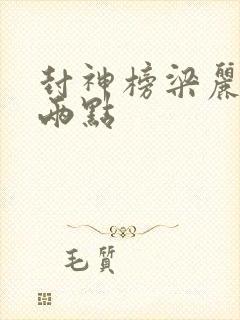 封神榜梁麗
兩點
毛質